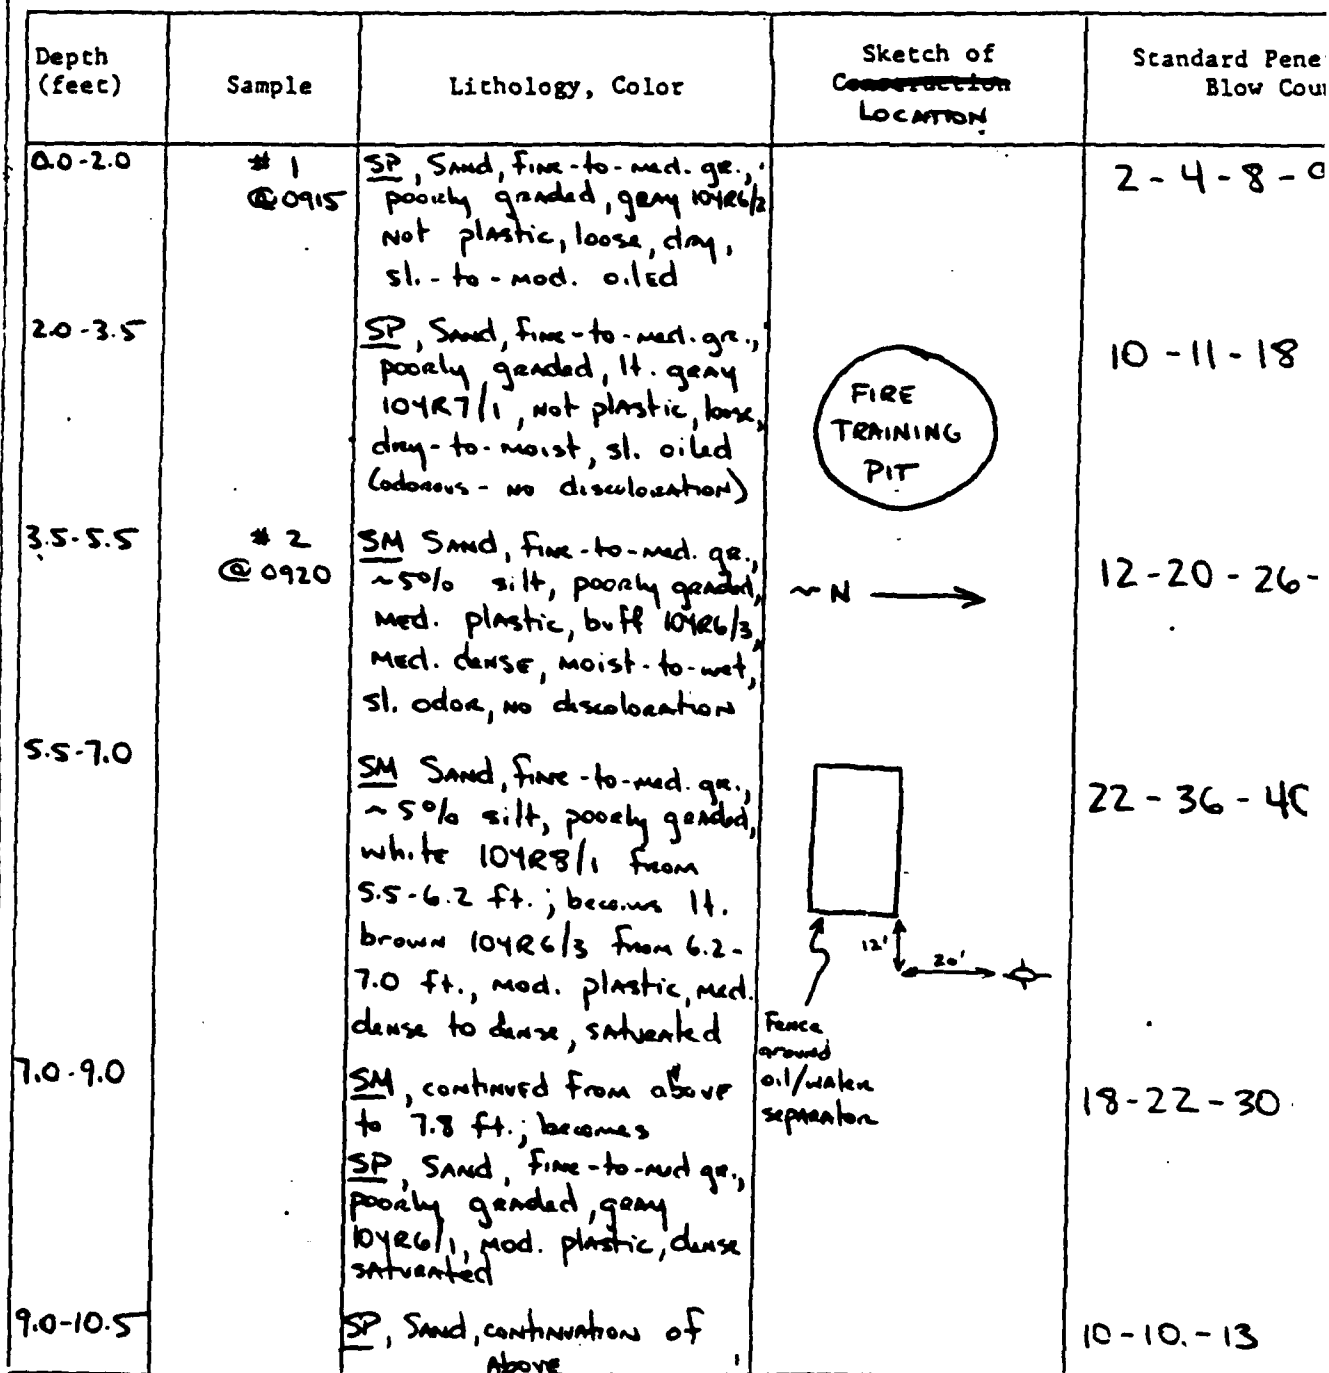 Depth
(feet)
Sample
Lithology, Color
Sketch of
Construction
LOCATION
Standard Pene
Blow Cou
0.0-2.0
# 1
@ 0915
SP, Sand, fine-to-med. gr.,
poorly graded, gray 10YR6/2
Not plastic, loose, dry,
sl.-to-mod. oiled
2-4-8-
2.0-3.5
SP, Sand, fine-to-med. gr.,
poorly graded, lt. gray
10YR7/1, not plastic, loose,
dry-to-moist, sl. oiled
(odorous - no discoloration)
10-11-18
3.5-5.5
# 2
@ 0920
SM Sand, fine-to-med. gr.,
~5% silt, poorly graded,
med. plastic, buff 10YR6/3,
med. dense, moist-to-wet,
sl. odor, no discoloration
12-20-26-
5.5-7.0
SM Sand, fine-to-med. gr.,
~5% silt, poorly graded,
white 10YR8/1 from
5.5-6.2 ft.; becomes lt.
brown 10YR6/3 from 6.2-
7.0 ft., mod. plastic, med.
dense to dense, saturated
22-36-4
7.0-9.0
SM, continued from above
to 7.8 ft.; becomes
SP, Sand, fine-to-med gr.,
poorly graded, gray
10YR6/1, mod. plastic, dense
saturated
18-22-30
9.0-10.5
SP, Sand, continuation of
above
10-10-13
FIRE
TRAINING
PIT
~N
12'
20'
Fence
around
oil/water
separator